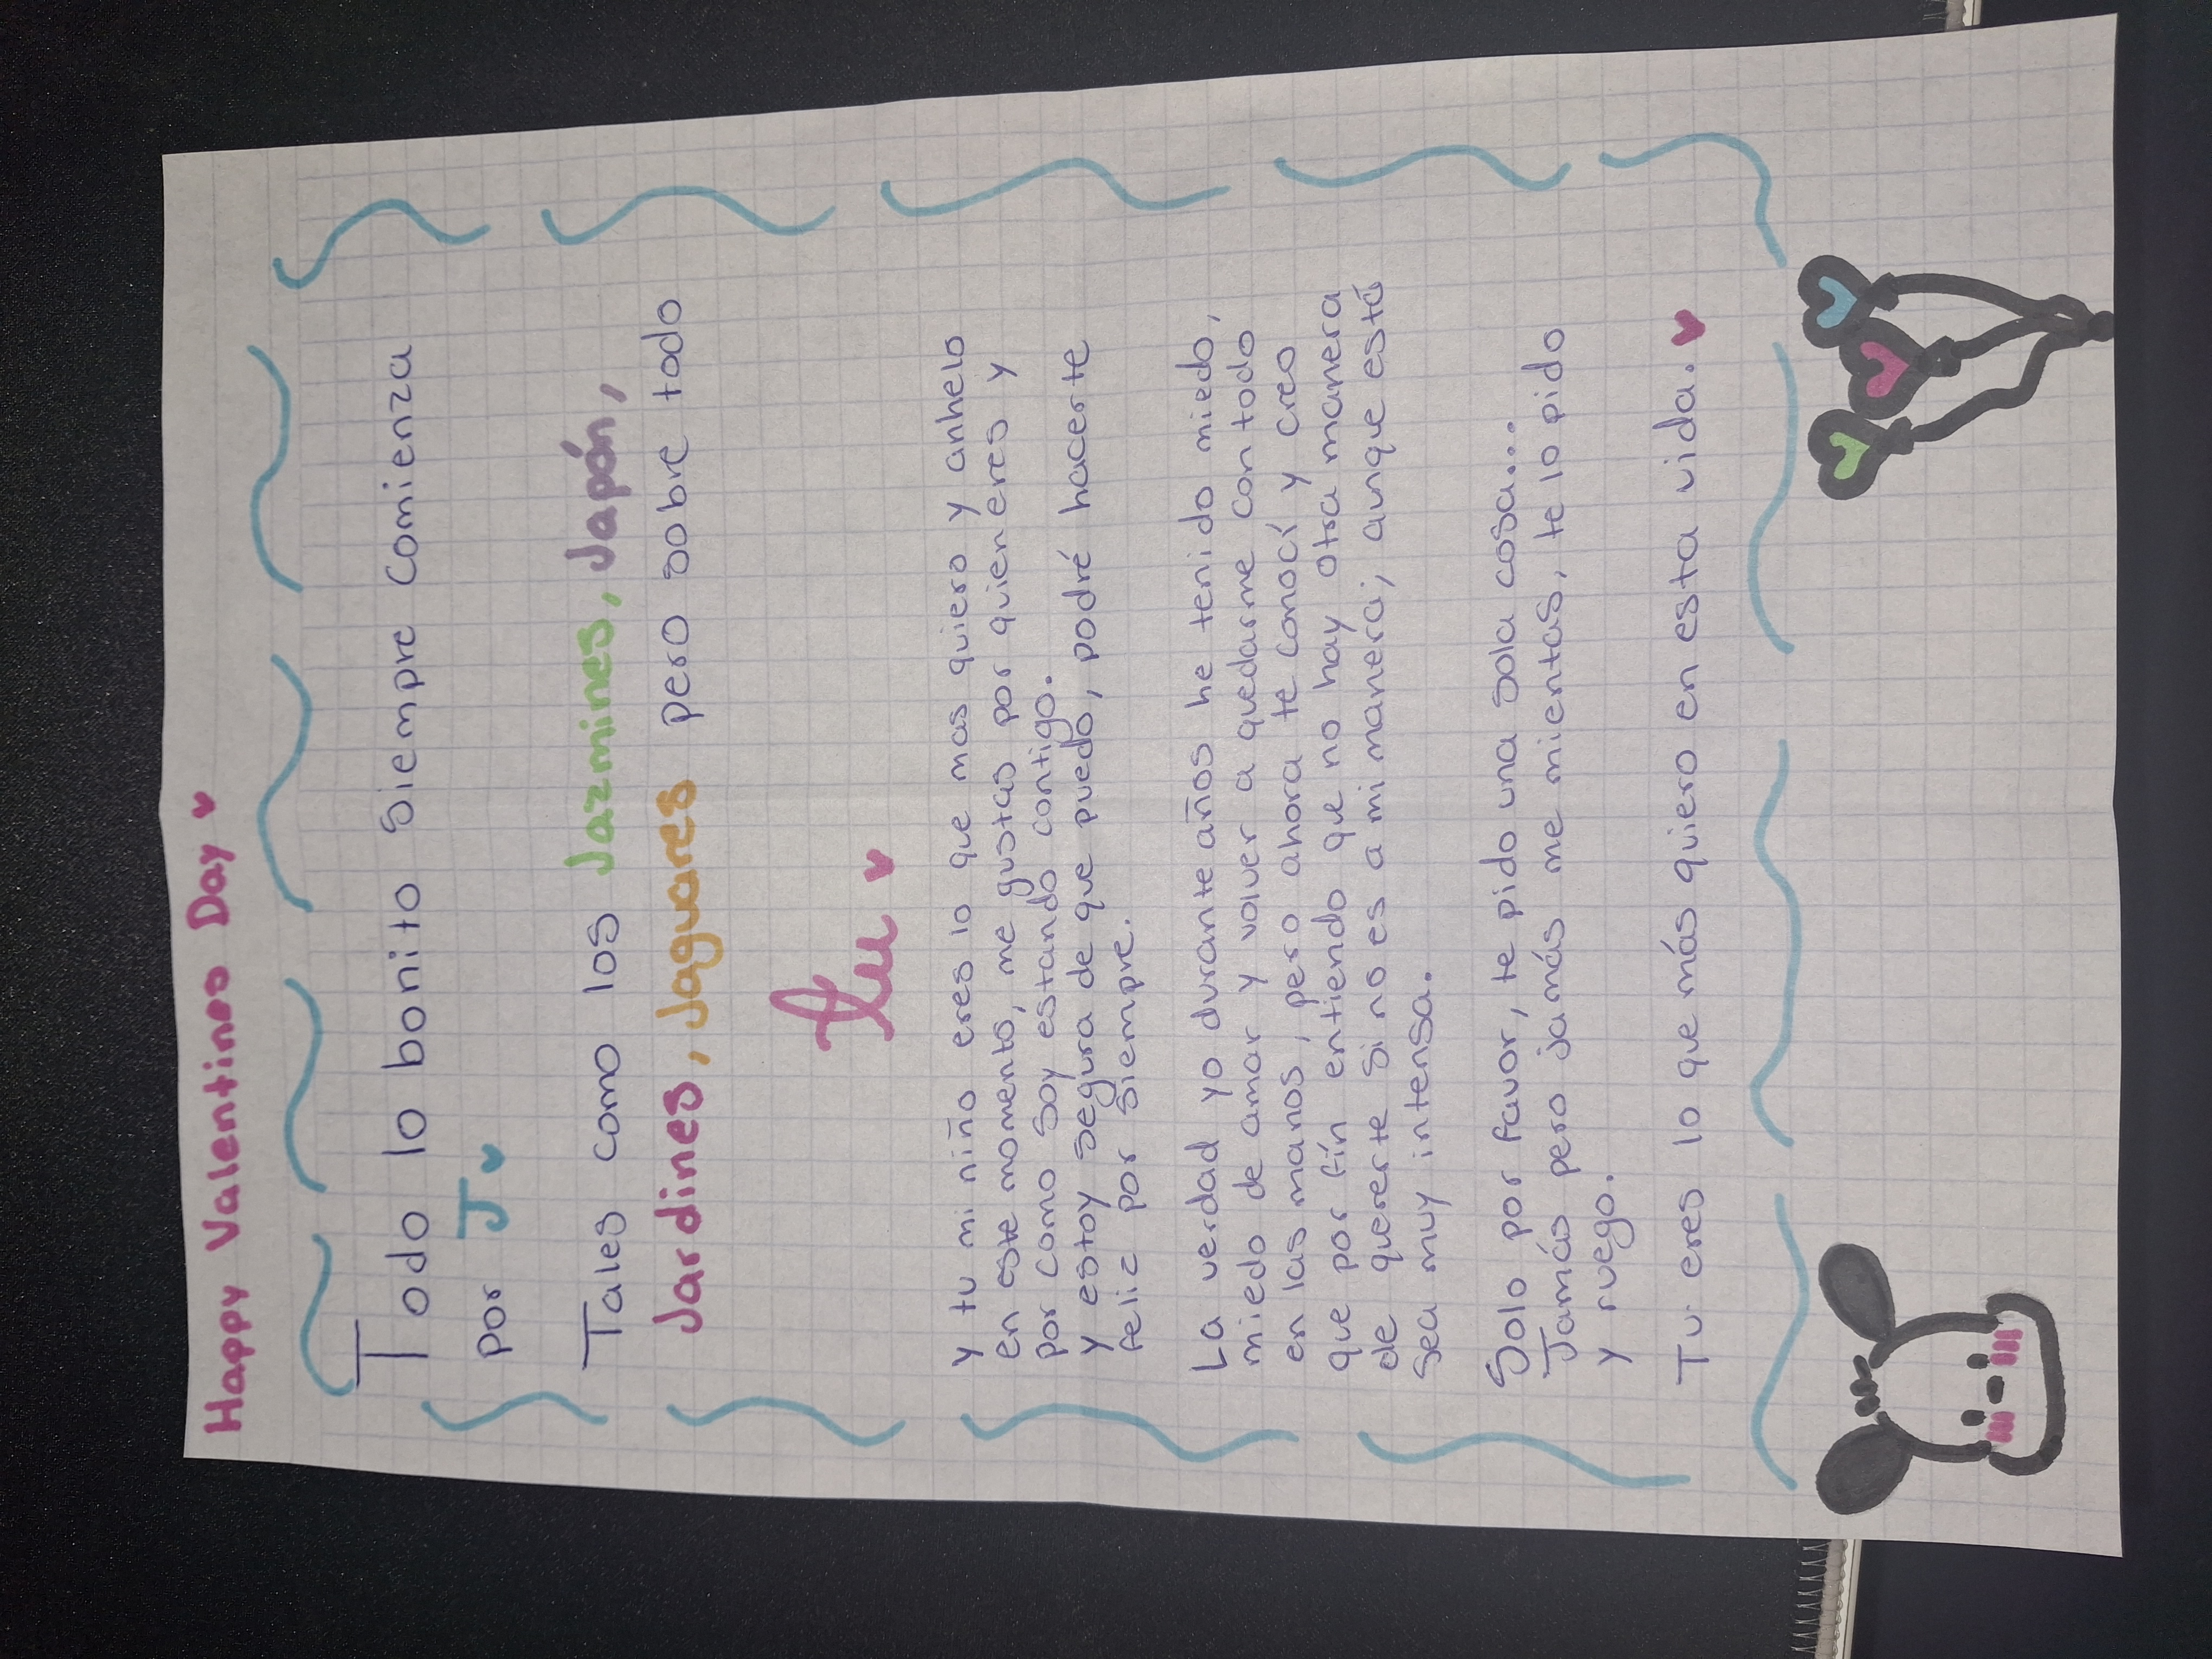 Happy Valentines Day ♥
Todo lo bonito siempre comienza
por J ♥
Tales como los Jazmines, Japón,
Jardines, Jaguares pero sobre todo
tu ♥
y tu mi niño eres lo que mas quiero y anhelo
en este momento, me gustas por quien eres y
por como soy estando contigo.
y estoy segura de que puedo, podré hacerte
feliz por siempre.
La verdad yo durante años he tenido miedo,
miedo de amar y volver a quedarme con todo
en las manos, pero ahora te conocí y creo
que por fín entiendo que no hay otra manera
de quererte si no es a mi manera; aunque está
sea muy intensa.
Solo por favor, te pido una sola cosa...
Jamás pero jamás me mientas, te lo pido
y ruego.
Tu eres lo que más quiero en esta vida. ♥